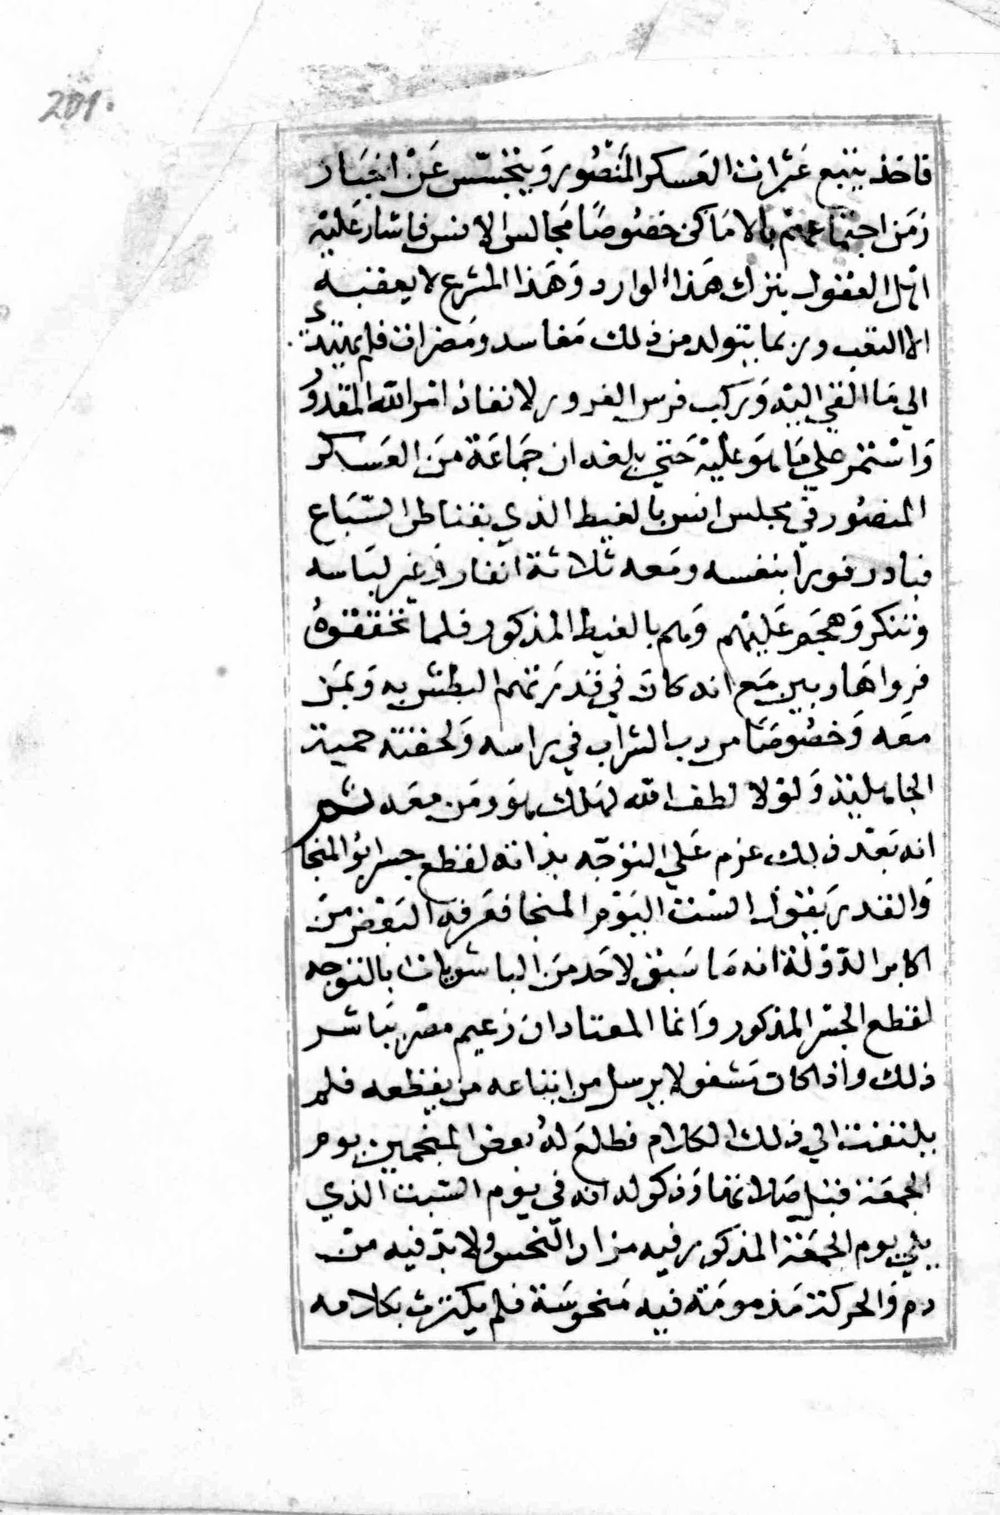 201.
فاخذ يتتبع عَثرات العَسكر المَنْصُور وَيتجسّس عَنْ اخبَار
زمَن اجتماعهم بالامَاكن خصُوصًا مَجالس الانس فاشار عَليْه
اهل العقول بترك هَذا الوارد وَهَذا المشرع لا يعقبه
الا التعب وربما يتولد من ذلك مَفاسد ومَضرات فلم يلتفت
الي مَا القي اليْه وَركب فرس الغرور لانفاذ امْر الله المقدُور
وَاسْتمر علي مَا هوَ عليْه حَتي بلغه ان جَمَاعَة مَن العَساكر
المنصُور في مجلس انس بالغيط الذي بقناطر السّبَاع
فبادر فورا بنفسه ومَعه ثلاثة انفار وَغير لبَاسه
وتنكر وَهجَم عَليْهم وَهم بالغيط المذكور فلما تحققوهُ
فروا هَاربين مَع انه كان في قدرَتهم البطش به وَبمَن
معَه وَخصُوصًا من دب الشراب في راسه وَلحقته حمية
الجاهليّة وَلوْلا لطف الله لهَلك هوَ ومَن معَه ثم
انه بَعْد ذلك عزم عَلي التوَجّه بذاته لقطع جسر ابو المنجا
وَالقدر يَقول السْت اليَوْم المنجا فعَرفه البَعْض منَ
اكابر الدّوْلَة انه مَا سَبق لاحَد منَ الباشويات بالتوَجه
لقطع الجسْر المذكور وَانما المعتاد ان زعيم مصْر يبَاشر
ذلك واذا كان مَشغولا يرسل من اتباعه من يقطعه فلم
يلتفت الي ذلك الكلام فطلعَ لهُ بعض المنجمين يوم
الجمعَة قبْل صَلاتها وَذكر له انه في يوم السّبت الذي
يلي يوم الجمعَة المذكور فيه مزاد النّحس ولا بدّ فيه منْ
دم وَالحركة مَذمومَة فيه مَنحوسَة فلم يكترث بكلامه